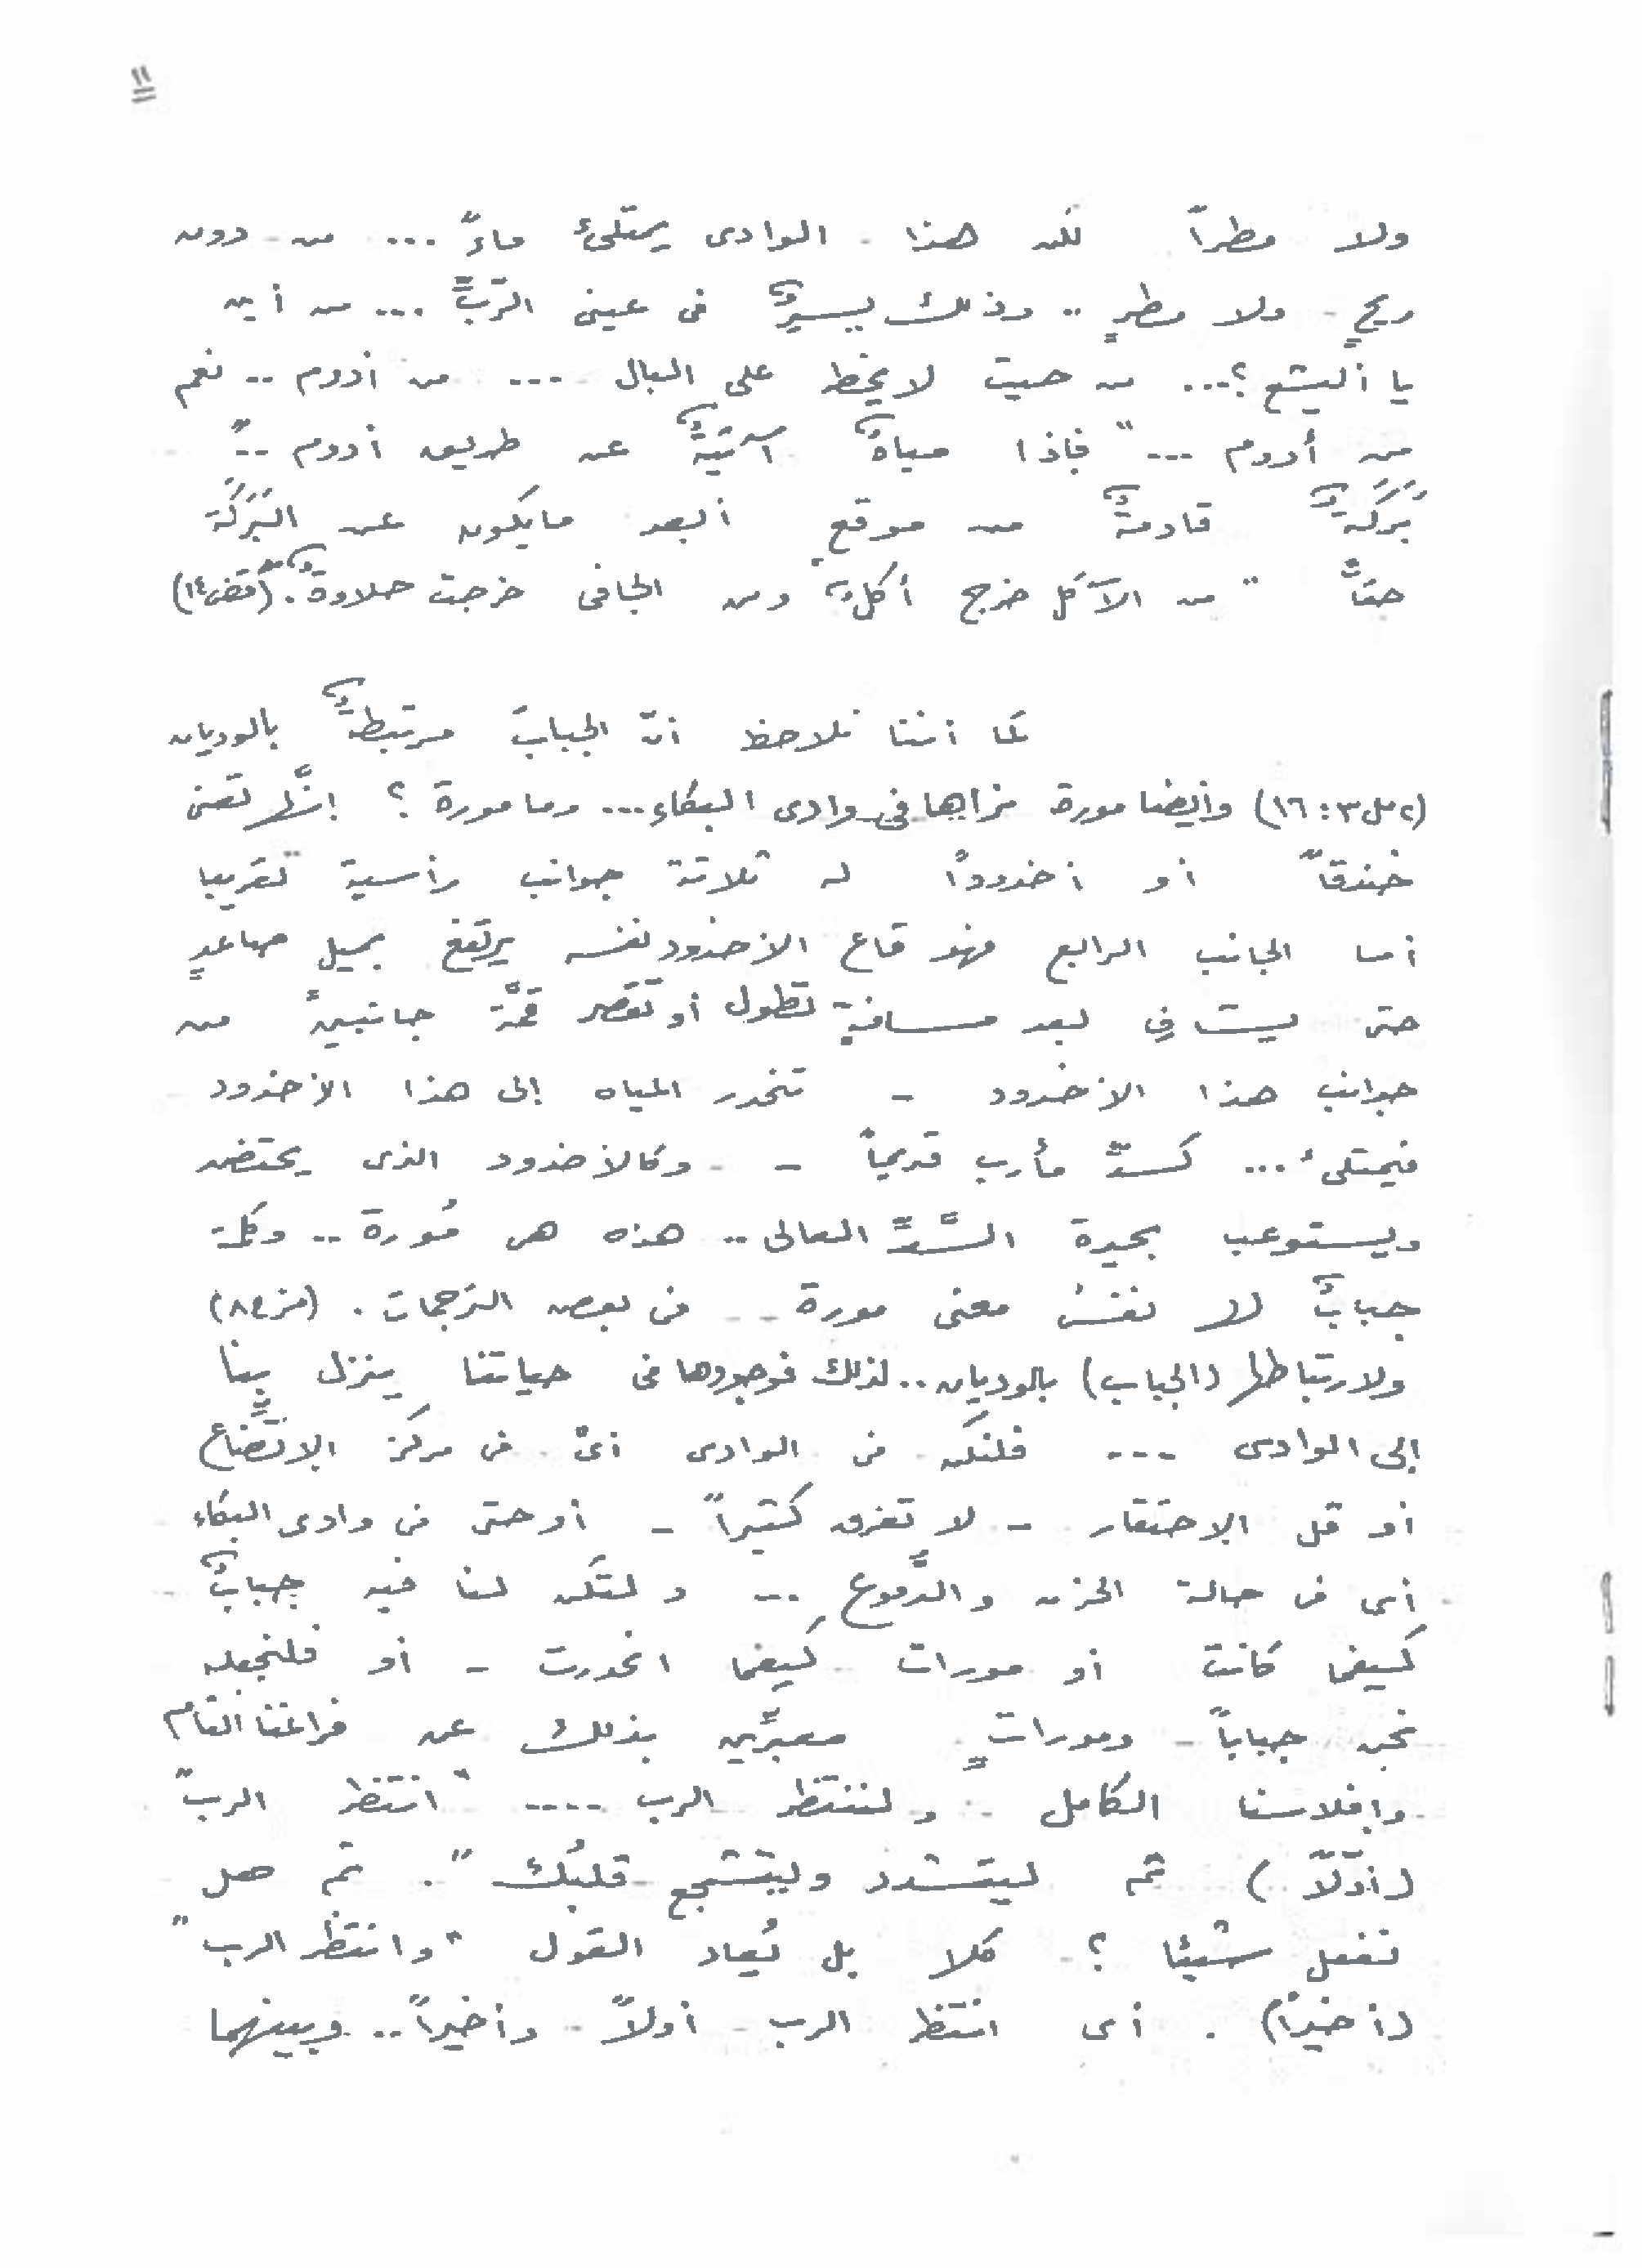 ١١
ولا مطراً لكن هذا الوادى يمتلئ ماءً ... من دون
ريحٍ ولا مطرٍ .. وذلك يسيرٌ فى عينى الرّبِّ ... من أين
يا أليشع ؟... من حيث لا يخطر على البال ... من أدوم .. نعم
من أدوم ... " فإذا مياهٌ آتيةٌ عن طريق أدوم .. "
بَرَكَةٌ قادمةٌ من موقعٍ أبعد مايكون عن البَرَكَة
حقاً " من الآكل خرج أكلٌ ومن الجافى خرجت حلاوةٌ " . (قض١٤)
كما أننا نلاحظ أنّ الجبابَ مرتبطةٌ بالوديان
(٢مل٣ : ١٦) وأيضا مورة نراها فى وادى البكاء ... وما مورة ؟ إنَّها تعنى
خندقاً أو أخدوداً له ثلاثة جوانب رأسية تقريبا
أما الجانب الرابع فهو قاع الأخدود نفسه يرتفع بميلٍ صاعدٍ
حتى يستوفى بعد مسافةٍ تطول أو تقصر قمَّة جانبين من
جوانب هذا الأخدود - تنحدر المياه إلى هذا الأخدود
فيمتلىء ... كسدّ مأرب قديماً - وكالأخدود الذى يحتضن
ويستوعب بحيرة السَّدِّ العالى .. هذه هى مُورة .. وكلمة
جبابٌ لها نفسُ معنى مورة - فى بعض الترجمات . (مز٨٤)
ولارتباطها (الجباب) بالوديان .. لذلك فوجودها فى حياتنا ينزل بنا
إلى الوادى ... فلنكن فى الوادى أىّ فى مركز الإتضاع
أو قل الإحتقار - لا تفرق كثيراً - أو حتى فى وادى البكاء
أى فى حالة الحزن والدُّموع ... ولتكن لنا فيه جبابٌ
كيفما كانت أو مورات كيفما انحدرت - أو فلنجعله
نحن جباباً ومورات معبِّرين بذلك عن فراغنا التام
وإفلاسنا الكامل ولننتظر الرب .... " انتظر الرب "
(أوّلاً) ثم ليتشدد وليتشجع قلبُك " . ثم هل
تفعل شيئا ؟ كلا بل يُعاد القول " وانتظر الرب "
(أخيراً) . أى انتظر الرب أولاً وأخيراً .. وبينهما